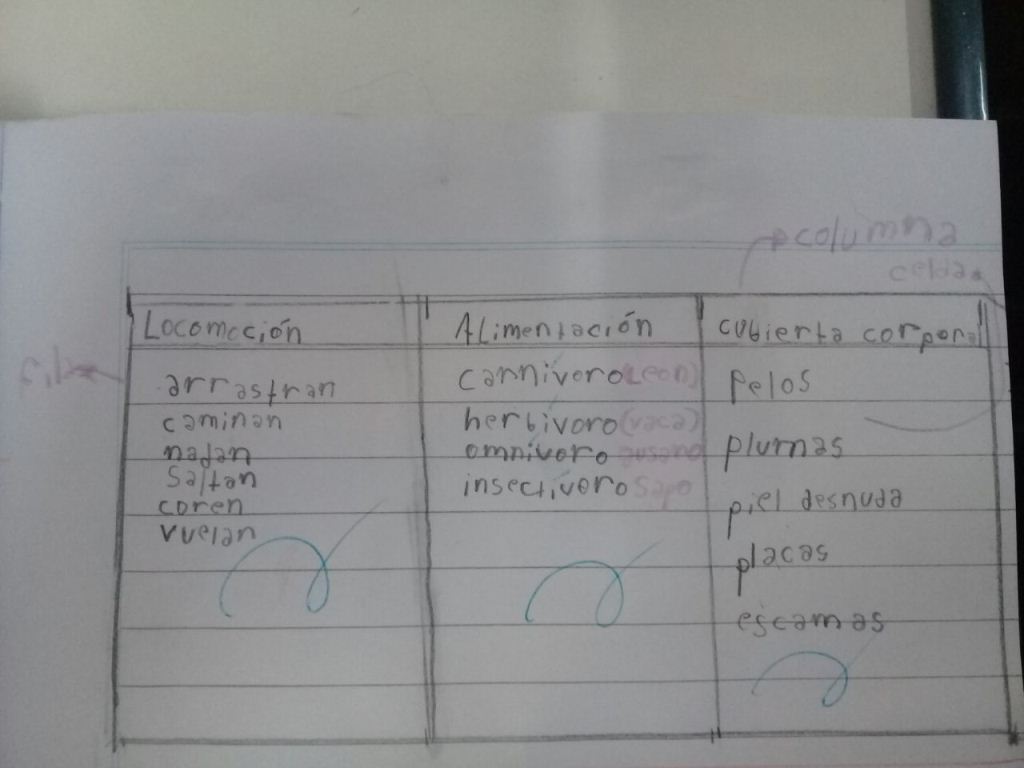 columna
celda
Locomoción
Alimentación
cubierta corporal
fila
arrastran
carnivoro (Leon)
pelos
caminan
herbivoro (vaca)
nadan
omnivoro gusano
plumas
saltan
insectivoro sapo
coren
piel desnuda
vuelan
placas
escamas